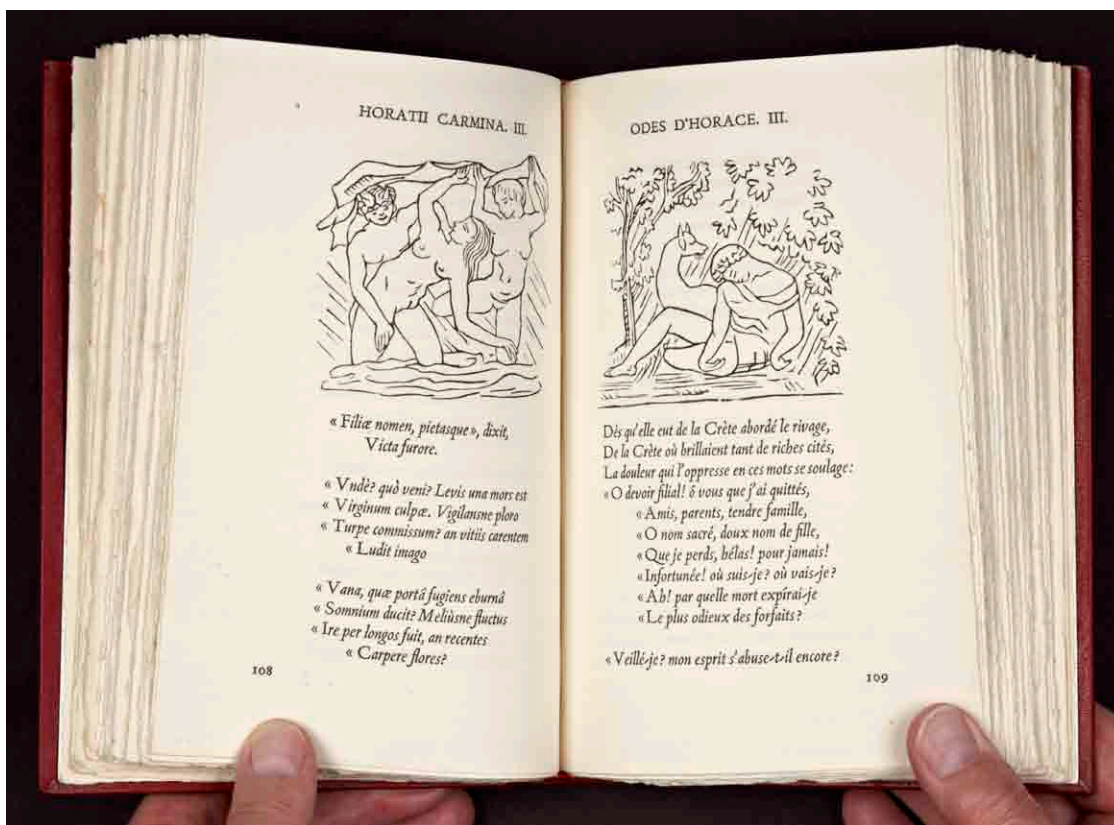 HORATII CARMINA. III.
« Filiæ nomen, pietasque », dixit,
Victa furore.
« Vndè? quò veni? Levis una mors est
« Virginum culpæ. Vigilansne ploro
« Turpe commissum? an vitiis carentem
« Ludit imago
« Vana, quæ portâ fugiens eburnâ
« Somnium ducit? Meliùsne fluctus
« Ire per longos fuit, an recentes
« Carpere flores?
108
ODES D'HORACE. III.
Dès qu'elle eut de la Crète abordé le rivage,
De la Crète où brillaient tant de riches cités,
La douleur qui l'oppresse en ces mots se soulage:
« O devoir filial! ô vous que j'ai quittés,
« Amis, parents, tendre famille,
« O nom sacré, doux nom de fille,
« Que je perds, hélas! pour jamais!
« Infortunée! où suis-je? où vais-je?
« Ah! par quelle mort expîrai-je
« Le plus odieux des forfaits?
« Veillé-je? mon esprit s'abuse-t-il encore?
109